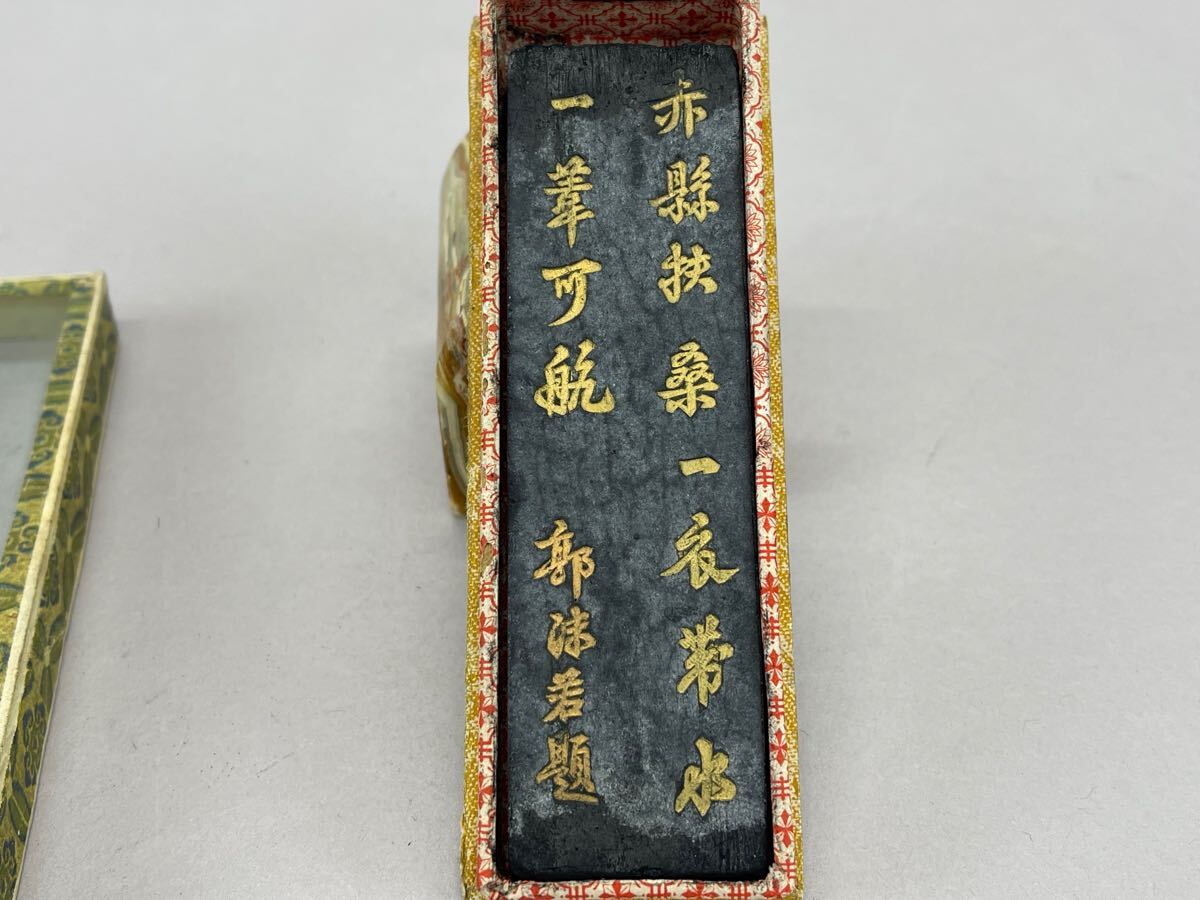 赤縣扶桑一衣带水
一葦可航
郭沫若題